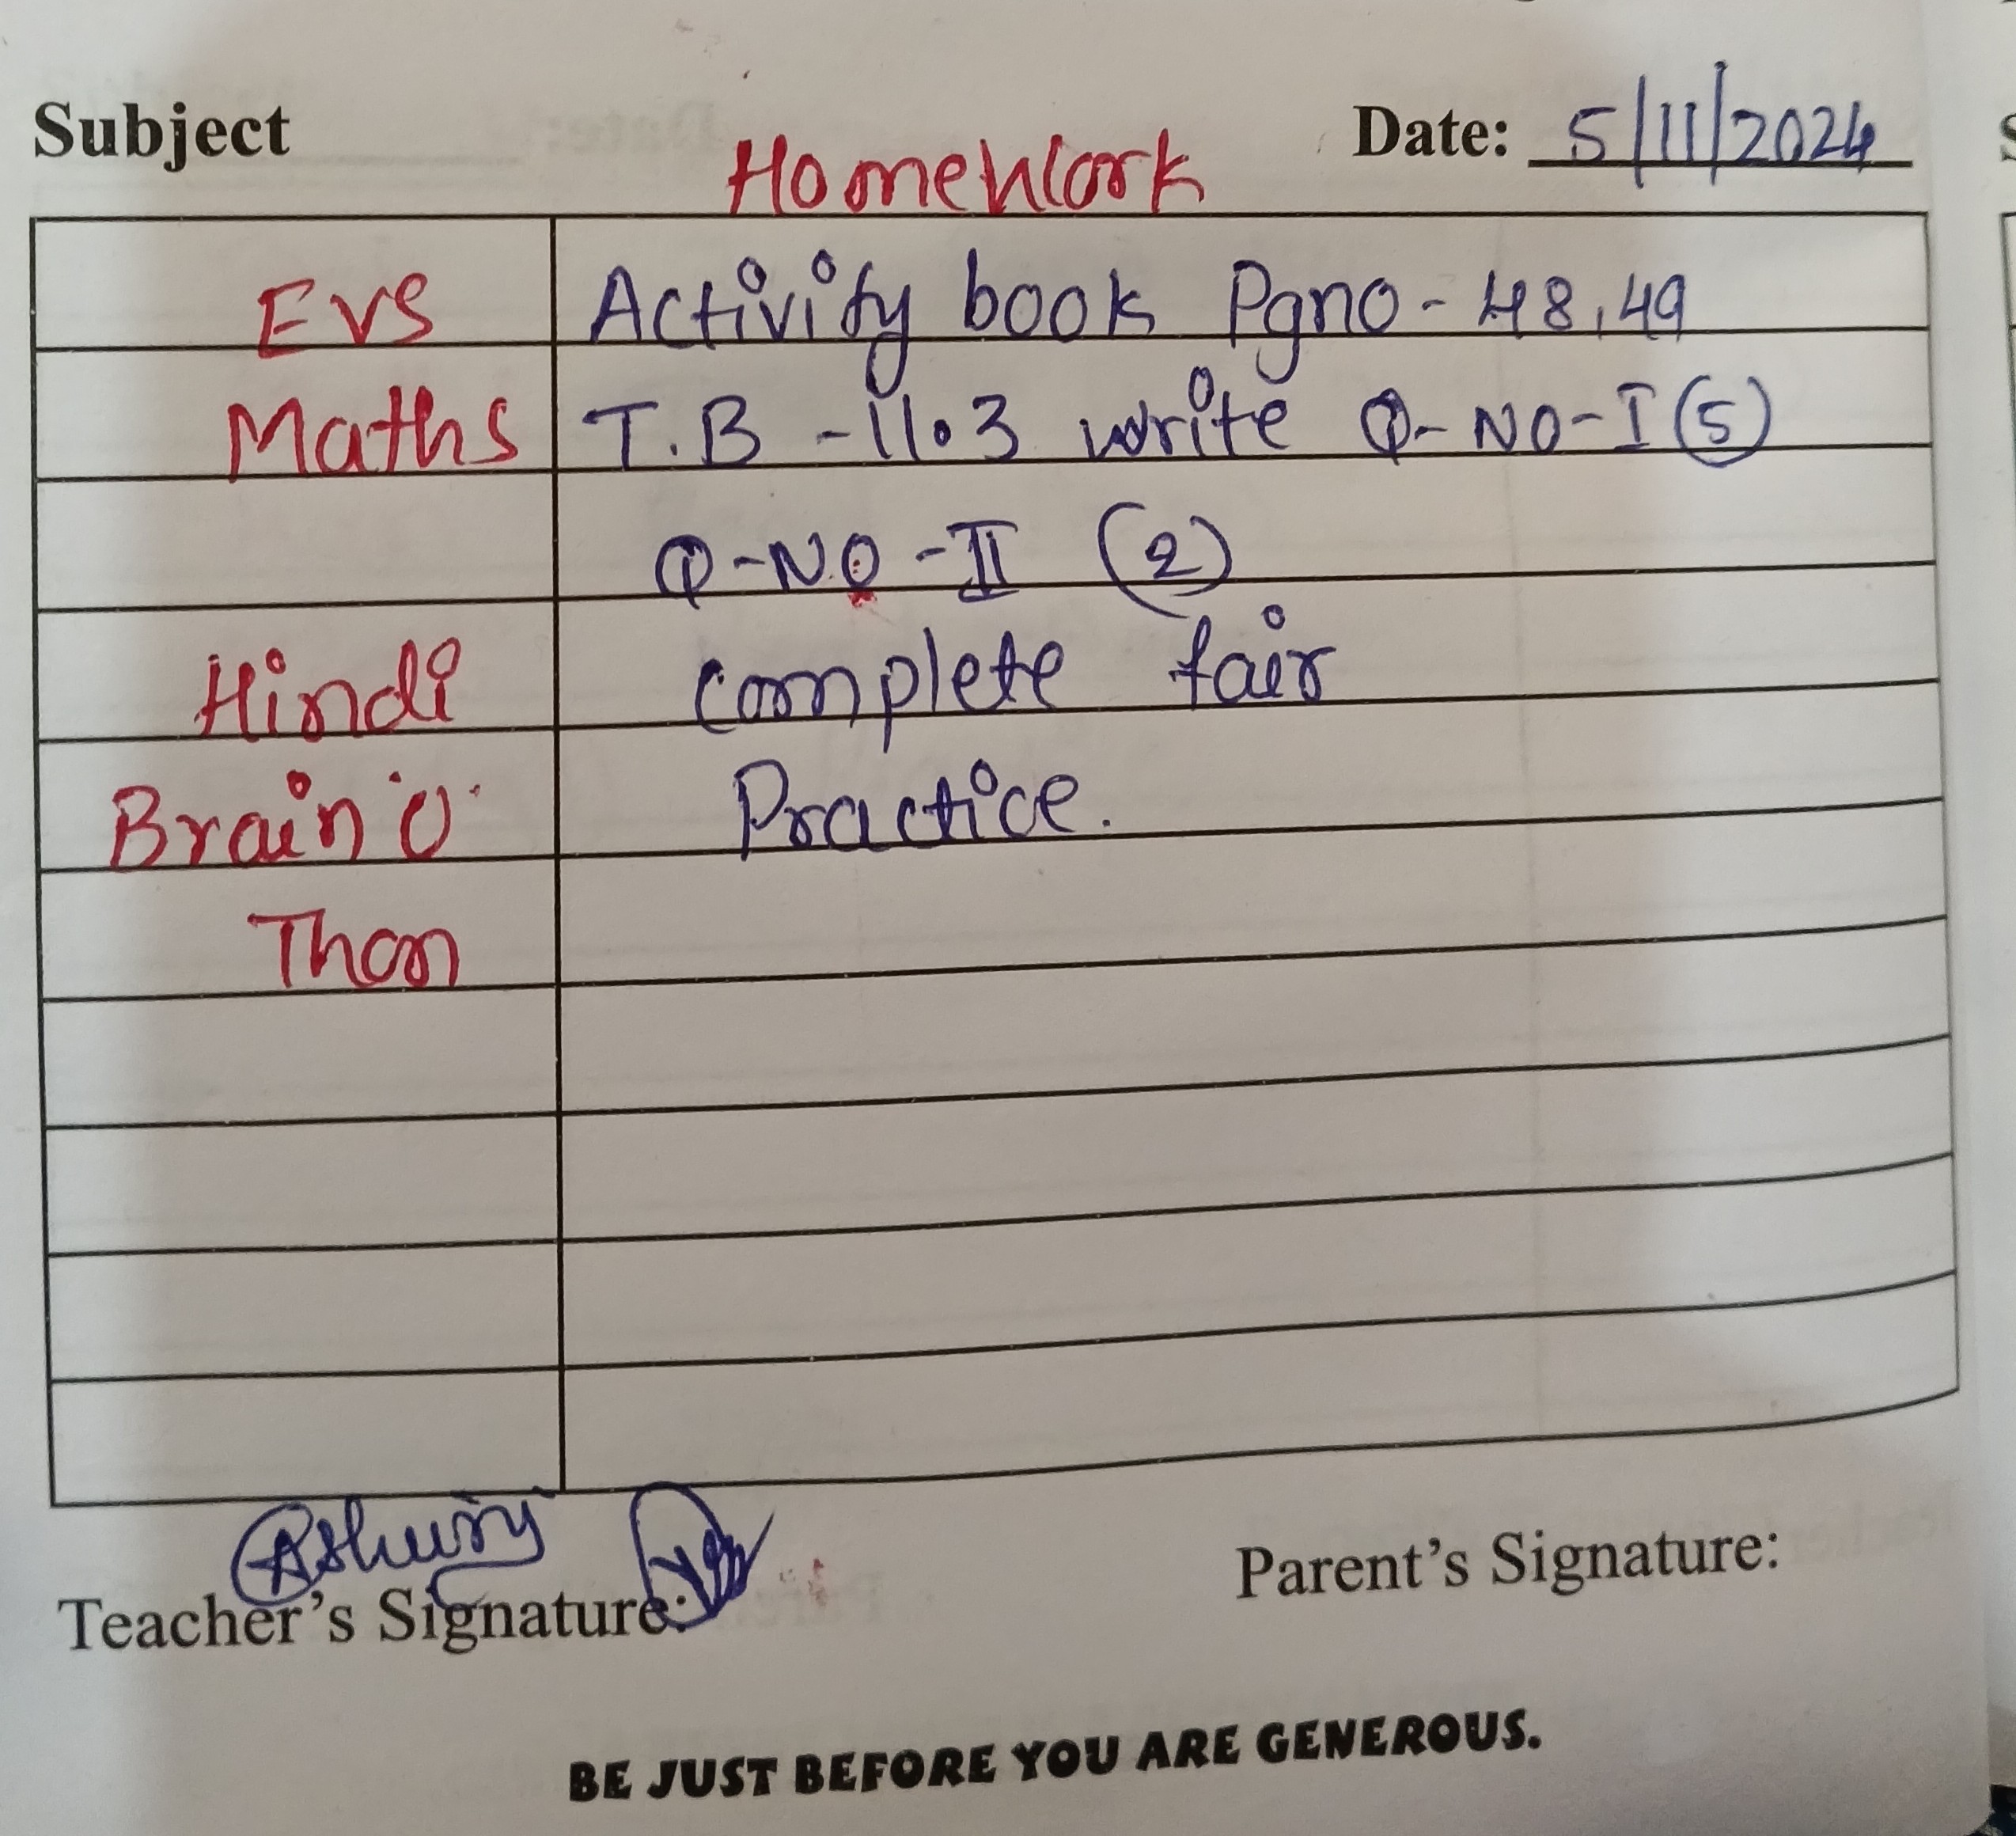 Subject Date: 5/11/2024
Homework
EVS Activity book Pgno - 48, 49
Maths T.B - 11.3 write Q- NO - I (5)
Q - NO - II (2)
Hindi complete fair
Brain 'O' Practice.
Thon
Teacher's Signature: Parent's Signature:
BE JUST BEFORE YOU ARE GENEROUS.